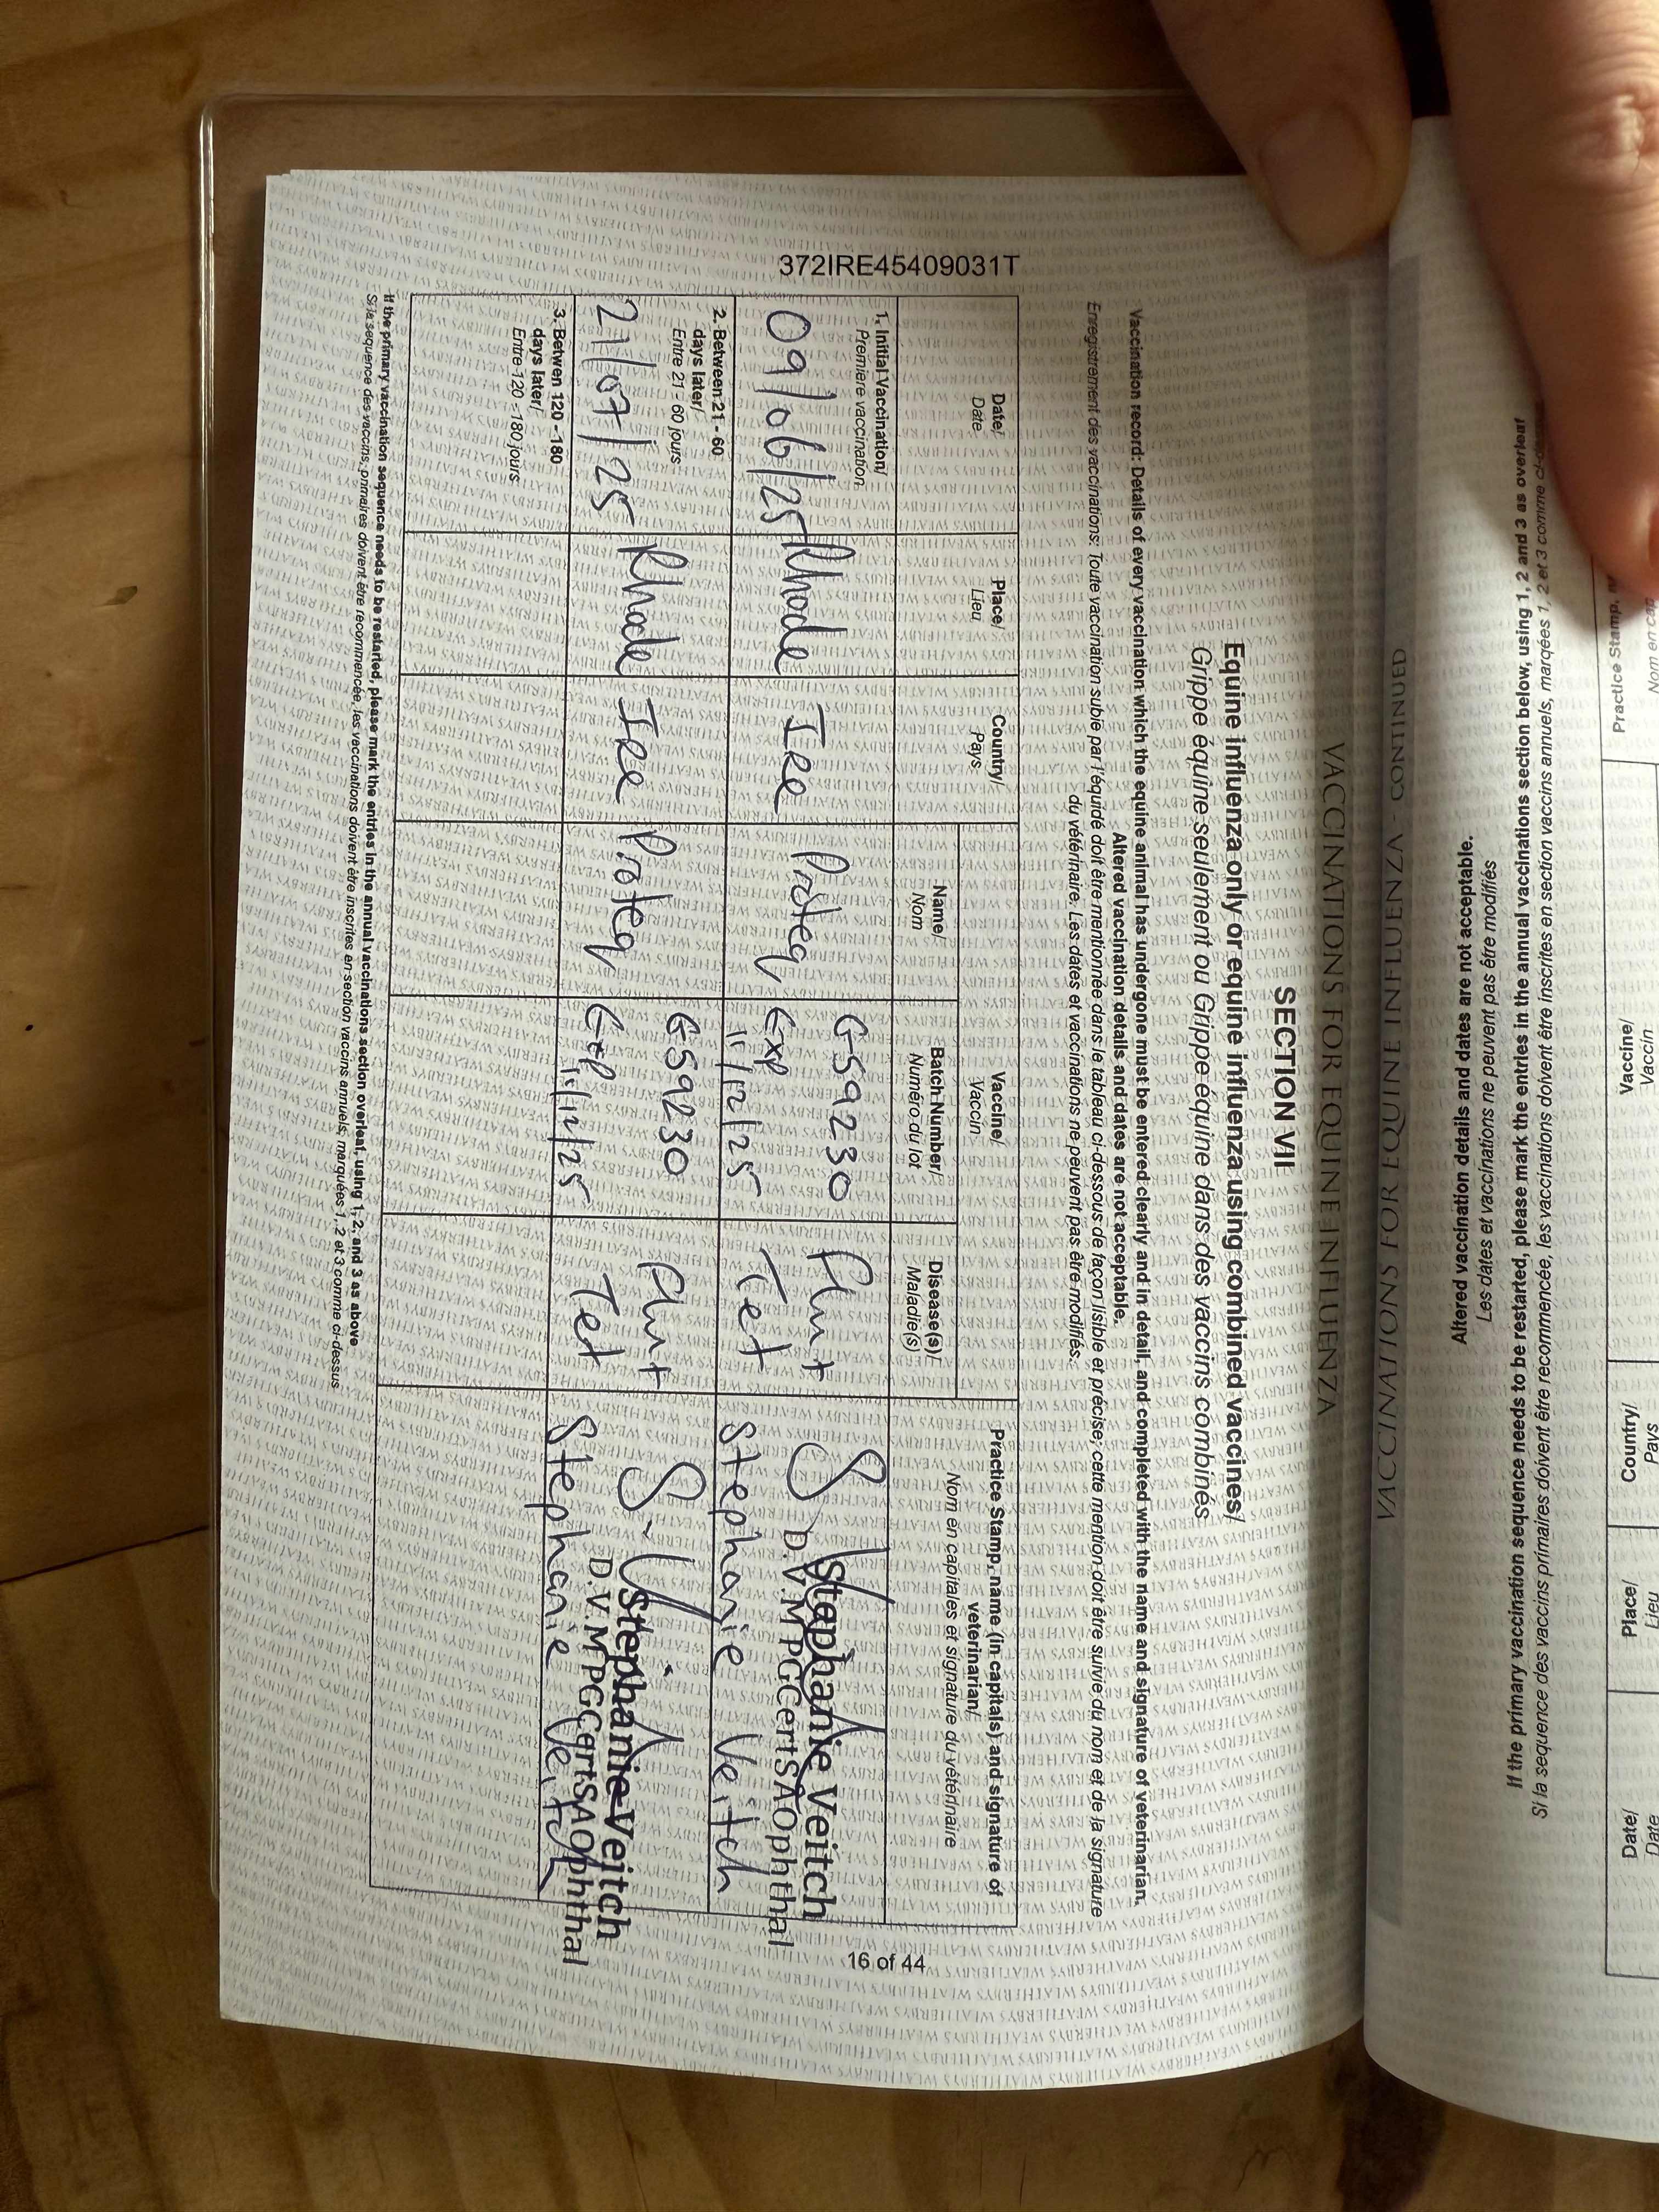 372IRE45409031T
SECTION VII
VACCINATIONS FOR EQUINE INFLUENZA
Equine influenza only or equine influenza using combined vaccines/
Grippe équine seulement ou Grippe équine dans des vaccins combinés
Vaccination record: Details of every vaccination which the equine animal has undergone must be entered clearly and in detail, and completed with the name and signature of veterinarian.
Altered vaccination details and dates are not acceptable.
Enregistrement des vaccinations: Toute vaccination subie par l'équidé doit être mentionnée dans le tableau ci-dessous de façon lisible et précise; cette mention doit être suivie du nom et de la signature
du vétérinaire. Les dates et vaccinations ne peuvent pas être modifiés.
Date/
Date
Place/
Lieu
Country/
Pays
Vaccine/
Vaccin
Name/
Nom
Batch Number/
Numéro du lot
Disease(s)/
Maladie(s)
Practice Stamp, name (in capitals) and signature of
veterinarian/
Nom en capitales et signature du vétérinaire
1. Initial Vaccination/
Première vaccination
09/06/25
Rhode
Ire
Proteq
G59230
Exp
11/12/25
Flu +
Tet
Stephanie Veitch
D.V.M PGCertSAOphthal
Stephanie Veitch
2. Between 21 - 60
days later/
Entre 21 - 60 jours
21/07/25
Rhode
Ire
Proteq
G59230
Exp
11/12/25
Flu +
Tet
Stephanie Veitch
D.V.M PGCertSAOphthal
Stephanie Veitch
3. Betwen 120 - 180
days later/
Entre 120 - 180 jours
If the primary vaccination sequence needs to be restarted, please mark the entries in the annual vaccinations section overleaf, using 1, 2, and 3 as above
Si la sequence des vaccins primaires doivent être recommencée, les vaccinations doivent être inscrites en section vaccins annuels, marquées 1, 2 et 3 comme ci-dessus
16 of 44
VACCINATIONS FOR EQUINE INFLUENZA - CONTINUED
Altered vaccination details and dates are not acceptable.
Les dates et vaccinations ne peuvent pas être modifiés
If the primary vaccination sequence needs to be restarted, please mark the entries in the annual vaccinations section below, using 1, 2 and 3 as overleaf
Si la sequence des vaccins primaires doivent être recommencée, les vaccinations doivent être inscrites en section vaccins annuels, marqées 1, 2 et 3 comme
Date/
Date
Place/
Lieu
Country/
Pays
Vaccine/
Vaccin
Practice Stamp,
Nom en